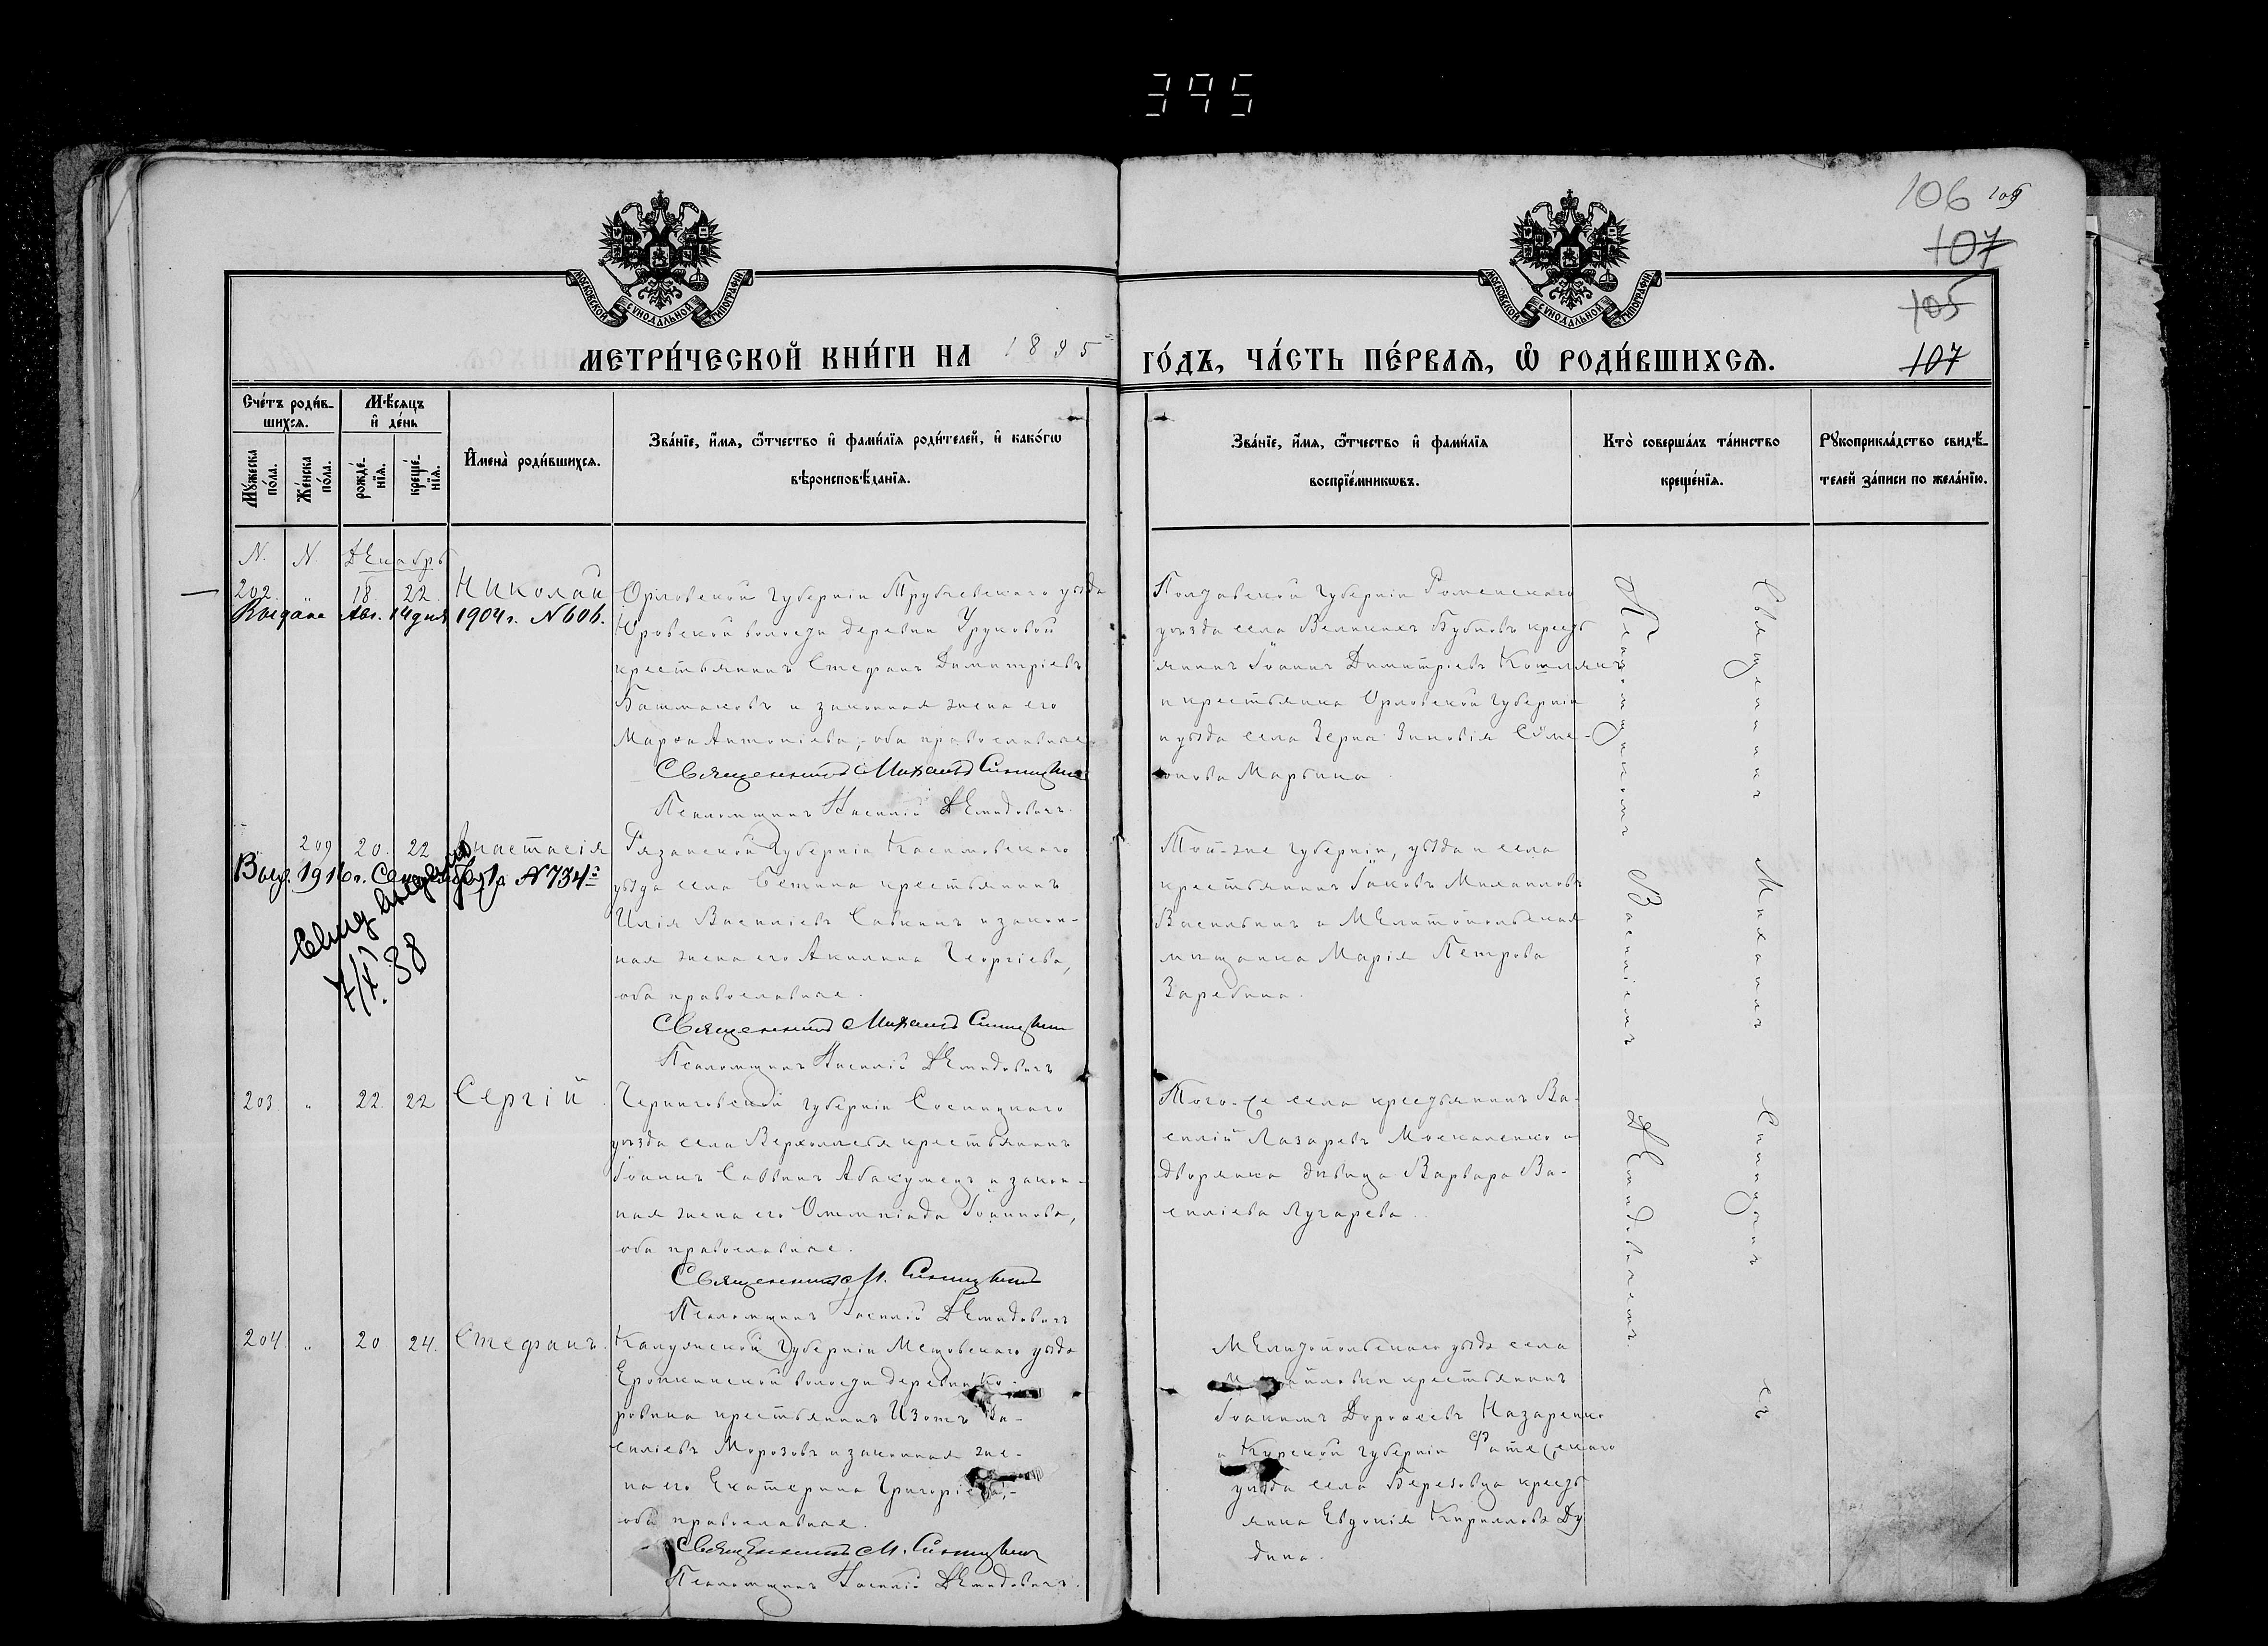 395
106 109
107
105
107
МОСКОВСКОЙ СѴНОДАЛЬНОЙ ТИПОГРАФІИ
МОСКОВСКОЙ СѴНОДАЛЬНОЙ ТИПОГРАФІИ
МЕТРИ́ЧЕСКОЙ КНИ́ГИ НА 1895 ГО́ДЪ, ЧА́СТЬ ПЕ́РВАѦ, Ѡ҆ РОДИ́ВШИХСѦ.
Сче́тъ роди́в-
шихсѧ.
Мѣ́сѧцъ
и҆ де́нь
Мꙋ́жеска по́ла.
Же́нска по́ла.
рожде́-
нїѧ.
креще́-
нїѧ.
И҆мена̀ роди́вшихсѧ.
Зва́нїе, и҆́мѧ, ѻ҆́тчество и҆ фами́лїѧ роди́телей, и҆ како́гѡ
вѣроисповѣ́данїѧ.
Зва́нїе, и҆́мѧ, ѻ҆́тчество и҆ фами́лїѧ
воспрїе́мникѡвъ.
Кто̀ соверша́лъ та́инство
креще́нїѧ.
Рꙋкоприкла́дство свидѣ́-
телей за́писи по жела́нїю.
N. N. Декабрь
202. „ 18 22 Николай
Выдана Авг. 14 дня 1904 г. N 606.
Орловской губерніи Трубчевскаго уѣзда
Юровской волости деревни
крестьянинъ Стефанъ Димитріевъ
Башмаковъ и законная жена его
Марѳа Антоніева, оба православные
Священникъ Михаилъ Синицкій
Псаломщикъ Василій Демидовичъ.
Полтавской губерніи Роменскаго
уѣзда села Великихъ Бубновъ кресть
янинъ Іоаннъ Димитріевъ
и крестьянка Орловской губерніи
и уѣзда села Зиновія Симе-
онова Марьина
209 20. 22 Анастасія
Выд. 1916 г. Сентября N 734
Свид выдано
7/X. 38
Рязанской губерніи Касимовскаго
уѣзда села Сетина крестьянинъ
Илія Василіевъ Савкинъ и закон-
ная жена его Акилина Георгіева,
оба православные.
Священникъ Михаилъ Синицкій
Псаломщикъ Василій Демидовичъ
Той-же губерніи, уѣзда и села
крестьянинъ Іаковъ Михаиловъ
Васильвинъ и Мелитопольская
мѣщанка Марія Петрова
Зарубина.
203. „ 22. 22 Сергій
Черниговской губерніи Сосницкаго
уѣзда села крестьянинъ
Іоаннъ Саввинъ Абакумецъ и закон-
ная жена его Олимпіада Іоаннова,
оба православные.
Священникъ М. Синицкій
Псаломщикъ Василій Демидовичъ
Того-же села крестьянинъ Ва-
силій Лазаревъ Москаленко и
дворянка дѣвица Варвара Ва-
силіева Лугарева.
204. „ 20 24. Стефанъ.
Калужской губерніи Мещовскаго уѣзда
Еропкинской волости деревни Ко-
ровина крестьянинъ Изотъ Ва-
силіевъ Морозовъ и законная же-
на его Екатерина Григоріева,-
оба православные.
Священникъ М. Синицкій
Псаломщикъ Василій Демидовичъ.
Мелитопольскаго уѣзда села
крестьянинъ
Іоакимъ Дороѳеевъ Назаренко
и Курской губерніи Фатежскаго
уѣзда села Березовца кресть
янка Евдокія Кириллова Ду
дина.
Священникъ Михаилъ Синицкій съ
Псаломщикомъ Василіемъ Демидовичемъ.